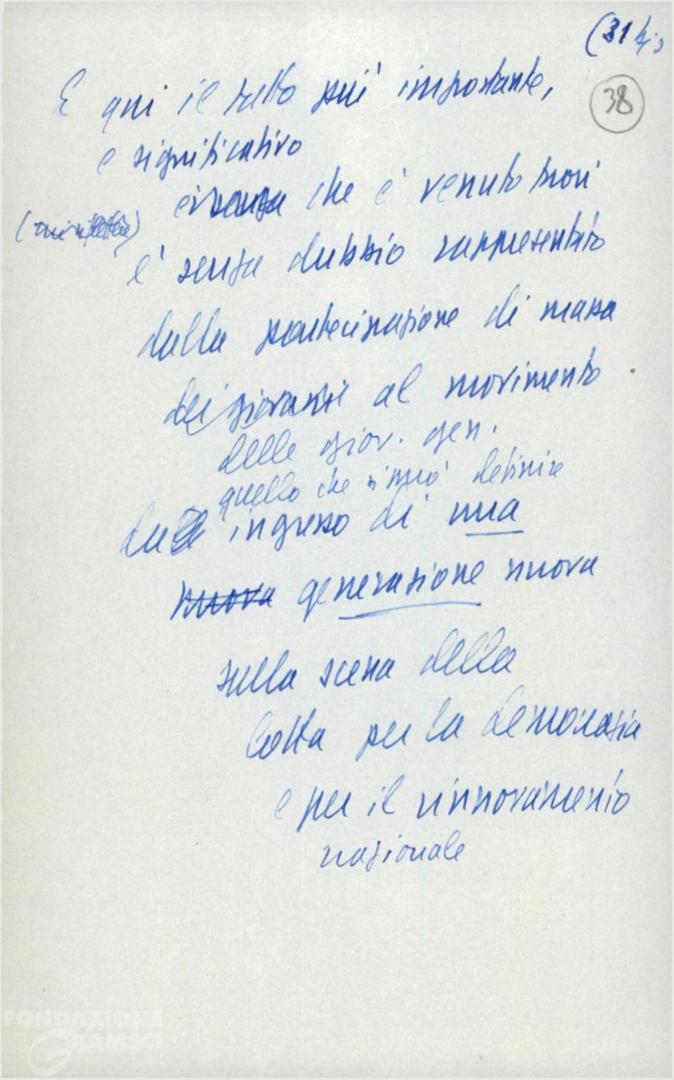 (31 bis
38
E qui il fatto più importante,
e significativo
che è venuto fuori
è senza dubbio rappresentato
dalla partecipazione di massa
dei giovani al movimento
delle giov. gen.
quello che si può definire
ingresso di una
nuova generazione nuova
sulla scena della
lotta per la democrazia
e per il rinnovamento
nazionale
FONDAZIONE
GRAMSCI